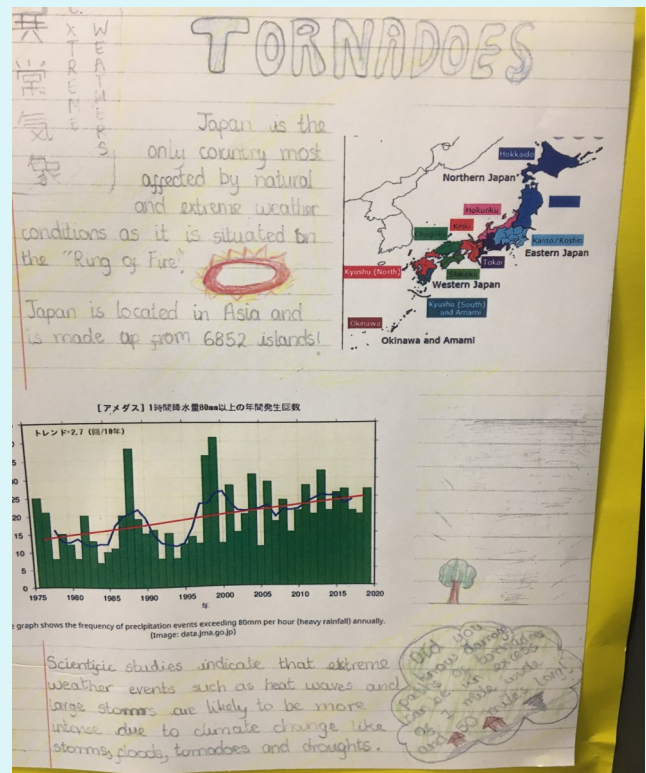 常気象
EXTREME
WEATHERS
TORNADOES
Japan is the
only country most
affected by natural
and extreme weather
conditions as it is situated on
the "Ring of Fire".
Japan is located in Asia and
is made up from 6852 islands!
Hokkaido
Northern Japan
Kinki
Kanto/Koshin
Eastern Japan
Tokai
Kyushu (North)
Shikoku
Western Japan
Kyushu (South)
and Amami
Okinawa
Okinawa and Amami
[アメダス] 1時間降水量80mm以上の年間発生回数
トレンド=2.7 (回/10年)
20
15
10
5
0
1975 1980 1985 1990 1995 2000 2005 2010 2015 2020
年
graph shows the frequency of precipitation events exceeding 80mm per hour (heavy rainfall) annually.
(Image: data.jma.go.jp)
Scientific studies indicate that extreme
weather events such as heat waves and
large storms are likely to be more
intense due to climate change like
storms, floods, tornadoes and droughts.
Did you
know damage
paths of tornadoes
can be in excess
of 1 mile wide
and 50 miles long!